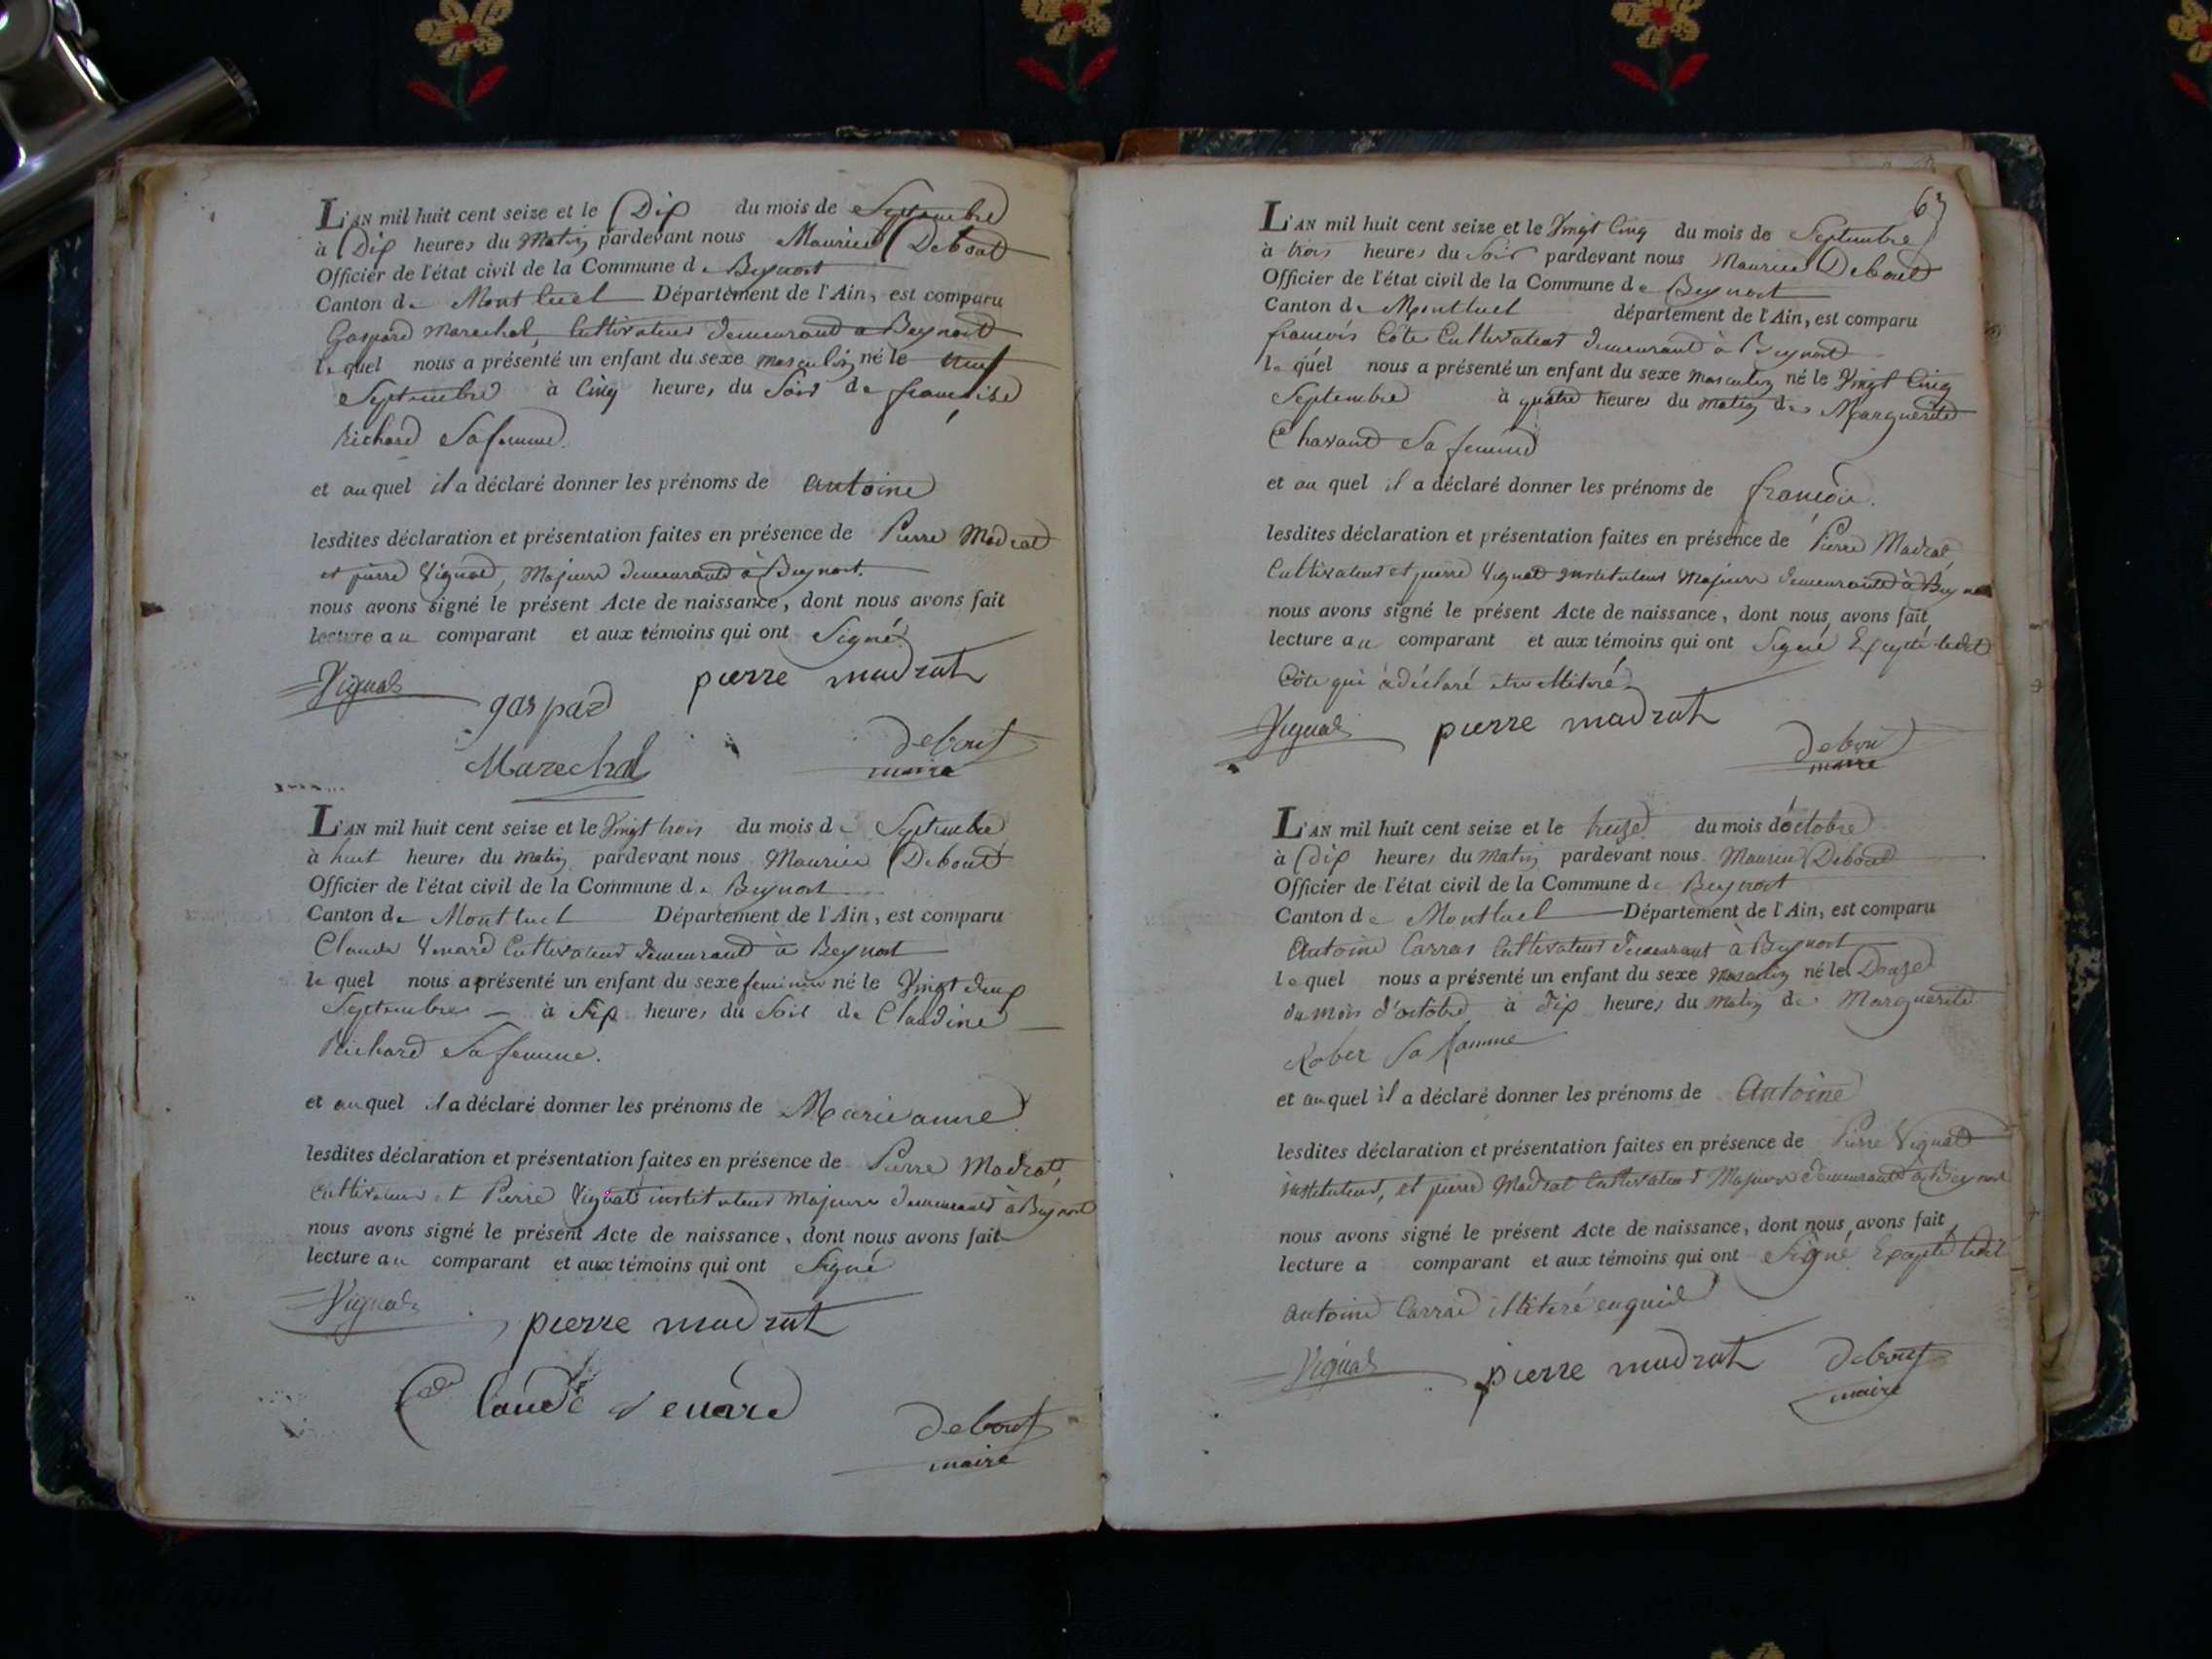 L'AN mil huit cent seize et le Dix du mois de Septembre
à Dix heures du Matin pardevant nous Maurice Debout
Officier de l'état civil de la Commune de Beynost
Canton de Montluel Département de l'Ain, est comparu
Gaspard Marechal, Cultivateur demeurant a Beynost
lequel nous a présenté un enfant du sexe masculin né le neuf
Septembre à Cinq heures du Soir de francoise
Richard Sa femme.
et auquel il a déclaré donner les prénoms de antoine
lesdites déclaration et présentation faites en présence de Pierre Madrat
et pierre Vignat, Majeurs demeurants à Beynost.
nous avons signé le présent Acte de naissance, dont nous avons fait
lecture au comparant et aux témoins qui ont Signé
Vignat
pierre madrat
gaspard
Marechal
debout
maire
L'AN mil huit cent seize et le Vingt trois du mois de Septembre
à huit heures du matin pardevant nous Maurice Debout
Officier de l'état civil de la Commune de Beynost
Canton de Montluel Département de l'Ain, est comparu
Claude Venard Cultivateur demeurant à Beynost
lequel nous a présenté un enfant du sexe feminin né le Vingt deux
Septembre à Six heures du Soir de Claudine
Richard Sa femme.
et auquel il a déclaré donner les prénoms de Marieanne
lesdites déclaration et présentation faites en présence de Pierre Madrat,
cultivateur et Pierre Vignat instituteur majeurs demeurants à Beynost
nous avons signé le présent Acte de naissance, dont nous avons fait
lecture au comparant et aux témoins qui ont Signé
Vignat
pierre madrat
Claude venard
debout
maire
63
L'AN mil huit cent seize et le Vingt Cinq du mois de Septembre
à trois heures du Soir pardevant nous Maurice Debout
Officier de l'état civil de la Commune de Beynost
Canton de Montluel département de l'Ain, est comparu
francois Côte Cultivateur demeurant à Beynost
lequel nous a présenté un enfant du sexe masculin né le Vingt Cinq
Septembre à quatre heures du matin de Marguerite
Chavant Sa femme
et au quel il a déclaré donner les prénoms de francois.
lesdites déclaration et présentation faites en présence de Pierre Madrat
Cultivateur et pierre Vignat instituteur Majeurs demeurants à Beynost
nous avons signé le présent Acte de naissance, dont nous avons fait
lecture au comparant et aux témoins qui ont Signé Excepté ledit
Côte qui a déclaré etre illitéré
Vignat
pierre madrat
debout
maire
L'AN mil huit cent seize et le treize du mois d'octobre
à Dix heures du Matin pardevant nous Maurice Debout
Officier de l'état civil de la Commune de Beynost
Canton de Montluel Département de l'Ain, est comparu
Antoine Carras Cultivateur demeurant à Beynost
lequel nous a présenté un enfant du sexe Masculin né le Douze
du mois d'octobre à dix heures du Matin de Marguerite
Rober Sa famme
et auquel il a déclaré donner les prénoms de Antoine
lesdites déclaration et présentation faites en présence de Pierre Vignat
instituteur, et pierre Madrat Cultivateur Majeurs demeurants à Beynost
nous avons signé le présent Acte de naissance, dont nous avons fait
lecture a comparant et aux témoins qui ont Signé Excepté ledit
Antoine Carras illitéré
Vignat
pierre madrat
debout
maire